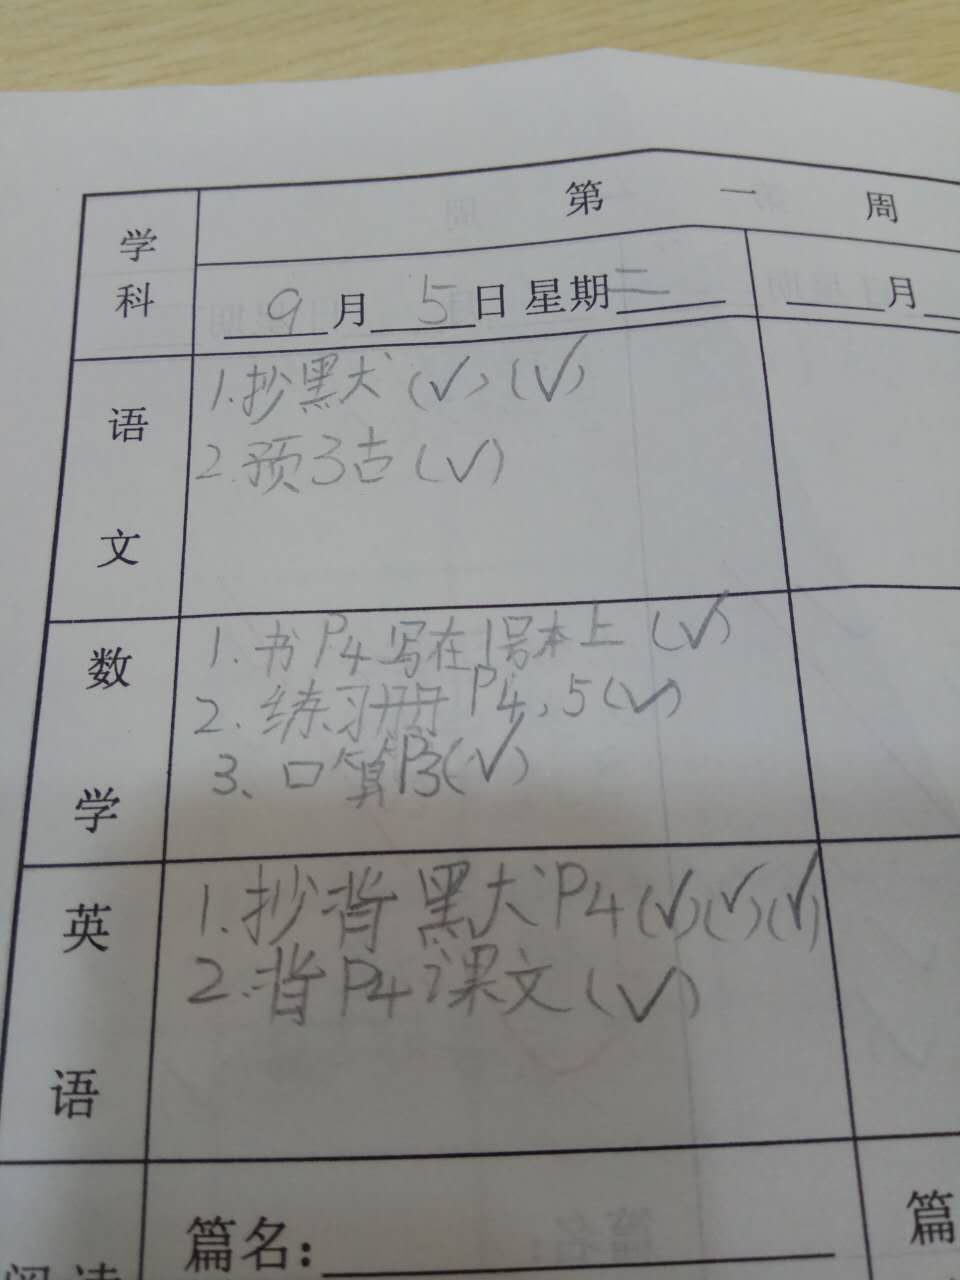 学科
第一周
9月5日 星期二
月
语文
1.抄黑犬(√)(√)
2.预3古(√)
数学
1.书P4写在1号本上(√)
2.练习册P4,5(√)
3、口算P3(√)
英语
1.抄背黑犬P4(√)(√)(√)
2.背P4课文(√)
阅读
篇名：
篇